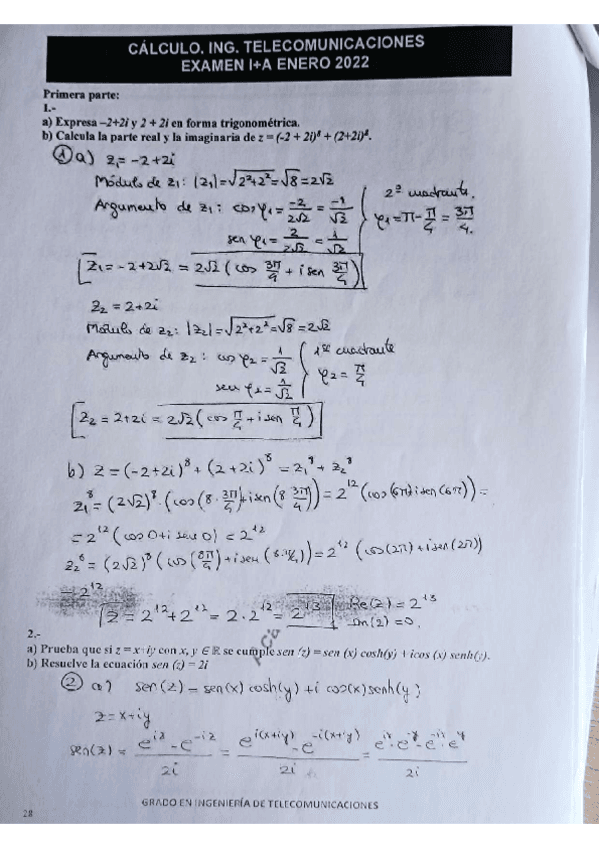 CÁLCULO. ING. TELECOMUNICACIONES
EXAMEN I+A ENERO 2022
Primera parte:
1.-
a) Expresa –2+2i y 2 + 2i en forma trigonométrica.
b) Calcula la parte real y la imaginaria de z = (-2 + 2i)⁸ + (2+2i)⁸.
① a) z₁ = -2+2i
Módulo de z₁: |z₁| = √(2²+2²) = √8 = 2√2
Argumento de z₁: cos φ₁ = -2/(2√2) = -1/√2
sen φ₁ = 2/(2√2) = 1/√2
2º cuadrante.
φ₁ = π - π/4 = 3π/4.
z₁ = -2+2√2 = 2√2 (cos 3π/4 + i sen 3π/4)
z₂ = 2+2i
Módulo de z₂: |z₂| = √(2²+2²) = √8 = 2√2
Argumento de z₂: cos φ₂ = 1/√2
sen φ₂ = 1/√2
1er cuadrante
φ₂ = π/4
z₂ = 2+2i = 2√2 (cos π/4 + i sen π/4)
b) z = (-2+2i)⁸ + (2+2i)⁸ = z₁⁸ + z₂⁸
z₁⁸ = (2√2)⁸ · (cos(8·3π/4) + i sen(8 3π/4)) = 2¹² (cos(6π) i sen(6π)) =
= 2¹² (cos 0 + i sen 0) = 2¹²
z₂⁸ = (2√2)⁸ (cos(8π/4) + i sen(8·π/4)) = 2¹² (cos(2π) + i sen(2π))
= 2¹²
z = 2¹² + 2¹² = 2·2¹² = 2¹³
Re(z) = 2¹³
Im(z) = 0.
2.-
a) Prueba que si z = x+iy con x, y ∈ ℝ se cumple sen (z) = sen (x) cosh(y) + icos (x) senh(y).
b) Resuelve la ecuación sen (z) = 2i
② a) sen(z) = sen(x) cosh(y) + i cos(x) senh(y)
z = x+iy
sen(z) = (e^{iz} - e^{-iz})/2i = (e^{i(x+iy)} - e^{-i(x+iy)})/2i = (e^{ix}·e^{-y} - e^{-ix}·e^{y})/2i
GRADO EN INGENIERÍA DE TELECOMUNICACIONES
28